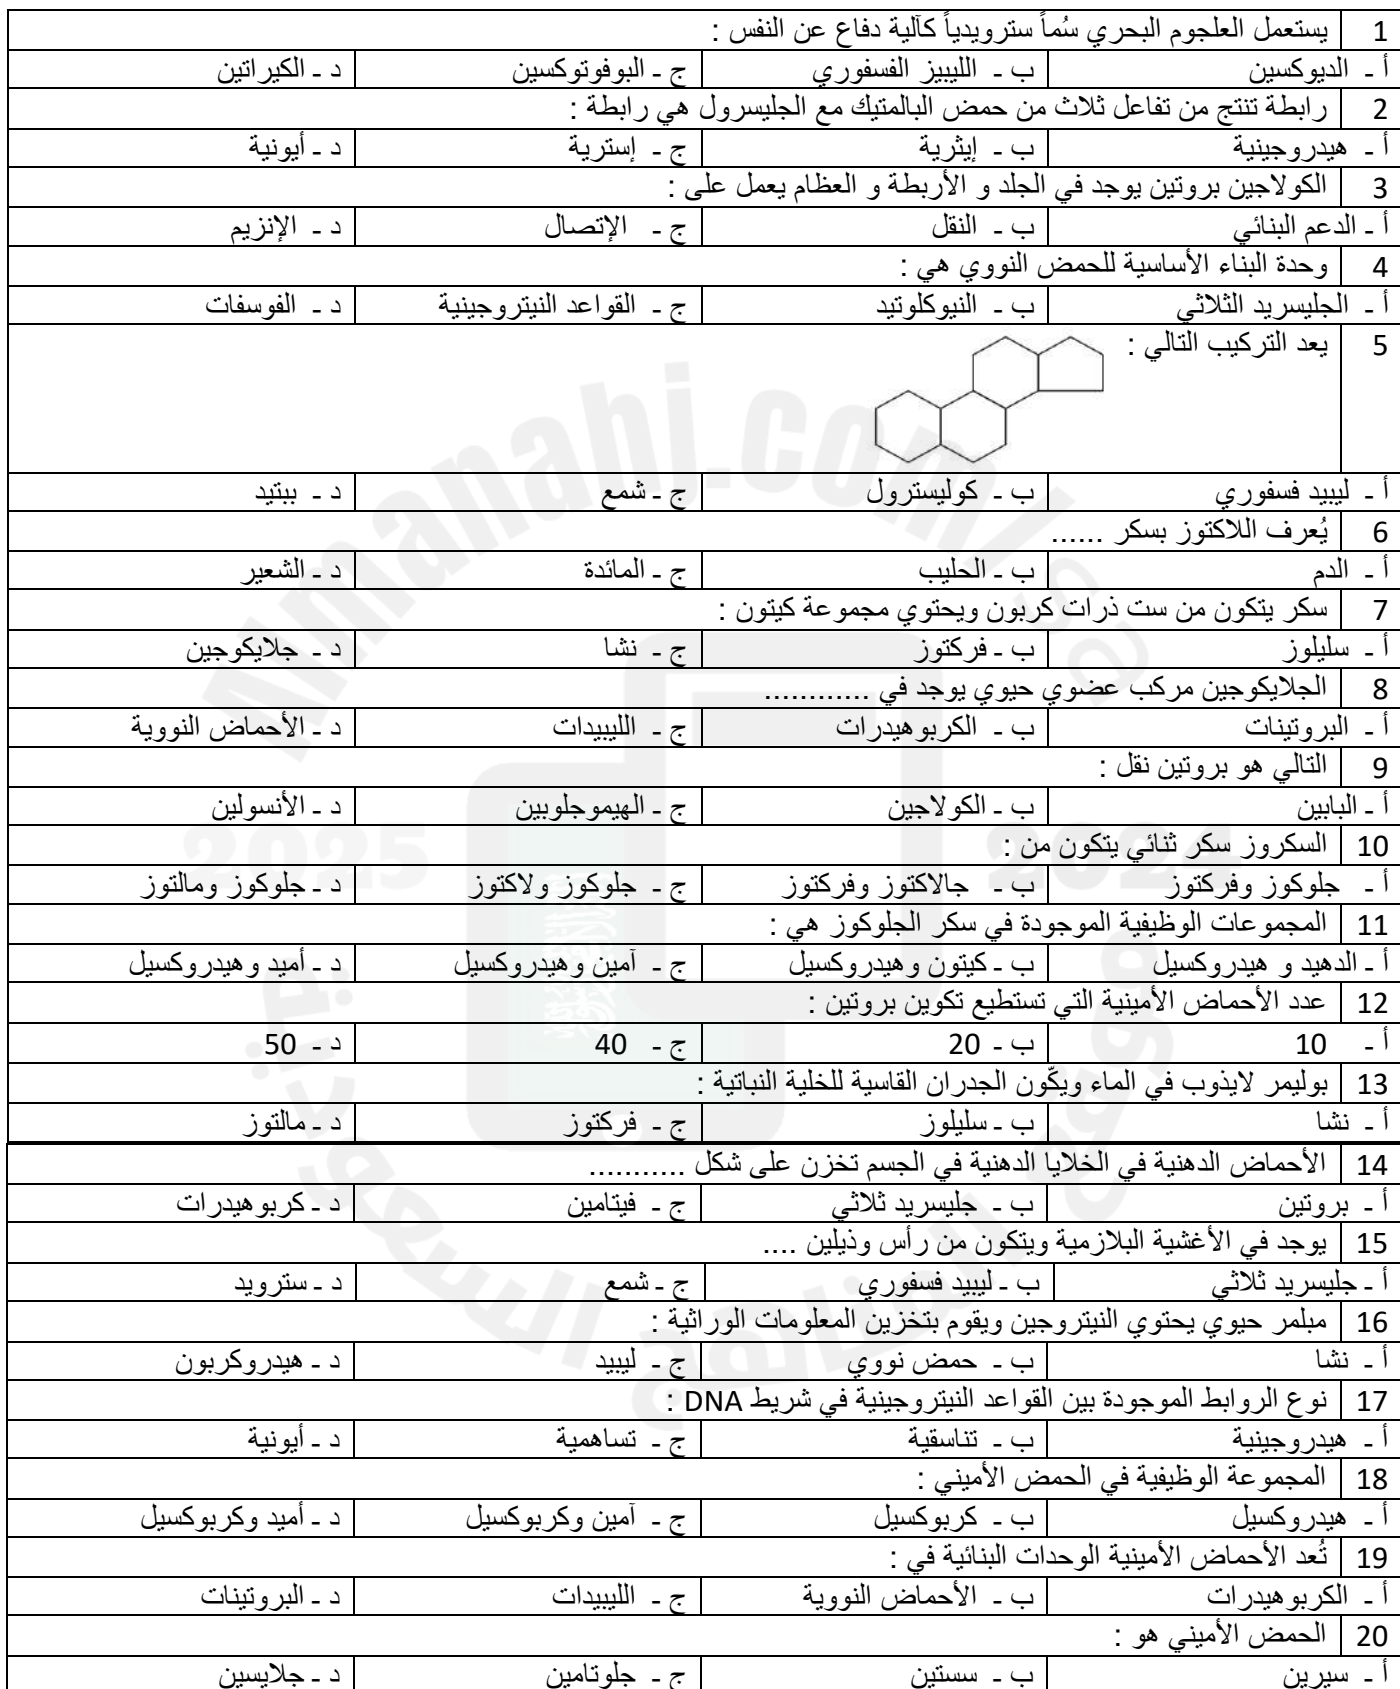 1 يستعمل العلجوم البحري سُماً سترويدياً كآلية دفاع عن النفس :
أ ـ الديوكسين ب ـ الليبيز الفسفوري ج ـ البوفوتوكسين د ـ الكيراتين
2 رابطة تنتج من تفاعل ثلاث من حمض البالمتيك مع الجليسرول هي رابطة :
أ ـ هيدروجينية ب ـ إيثرية ج ـ إسترية د ـ أيونية
3 الكولاجين بروتين يوجد في الجلد و الأربطة و العظام يعمل على :
أ ـ الدعم البنائي ب ـ النقل ج ـ الإتصال د ـ الإنزيم
4 وحدة البناء الأساسية للحمض النووي هي :
أ ـ الجليسريد الثلاثي ب ـ النيوكلوتيد ج ـ القواعد النيتروجينية د ـ الفوسفات
5 يعد التركيب التالي :
أ ـ ليبيد فسفوري ب ـ كوليسترول ج ـ شمع د ـ ببتيد
6 يُعرف اللاكتوز بسكر ......
أ ـ الدم ب ـ الحليب ج ـ المائدة د ـ الشعير
7 سكر يتكون من ست ذرات كربون ويحتوي مجموعة كيتون :
أ ـ سليلوز ب ـ فركتوز ج ـ نشا د ـ جلايكوجين
8 الجلايكوجين مركب عضوي حيوي يوجد في ............
أ ـ البروتينات ب ـ الكربوهيدرات ج ـ الليبيدات د ـ الأحماض النووية
9 التالي هو بروتين نقل :
أ ـ البابين ب ـ الكولاجين ج ـ الهيموجلوبين د ـ الأنسولين
10 السكروز سكر ثنائي يتكون من :
أ ـ جلوكوز وفركتوز ب ـ جالاكتوز وفركتوز ج ـ جلوكوز ولاكتوز د ـ جلوكوز ومالتوز
11 المجموعات الوظيفية الموجودة في سكر الجلوكوز هي :
أ ـ الدهيد و هيدروكسيل ب ـ كيتون وهيدروكسيل ج ـ آمين وهيدروكسيل د ـ أميد وهيدروكسيل
12 عدد الأحماض الأمينية التي تستطيع تكوين بروتين :
أ ـ 10 ب ـ 20 ج ـ 40 د ـ 50
13 بوليمر لايذوب في الماء ويكّون الجدران القاسية للخلية النباتية :
أ ـ نشا ب ـ سليلوز ج ـ فركتوز د ـ مالتوز
14 الأحماض الدهنية في الخلايا الدهنية في الجسم تخزن على شكل ...........
أ ـ بروتين ب ـ جليسريد ثلاثي ج ـ فيتامين د ـ كربوهيدرات
15 يوجد في الأغشية البلازمية ويتكون من رأس وذيلين ....
أ ـ جليسريد ثلاثي ب ـ ليبيد فسفوري ج ـ شمع د ـ سترويد
16 مبلمر حيوي يحتوي النيتروجين ويقوم بتخزين المعلومات الوراثية :
أ ـ نشا ب ـ حمض نووي ج ـ ليبيد د ـ هيدروكربون
17 نوع الروابط الموجودة بين القواعد النيتروجينية في شريط DNA :
أ ـ هيدروجينية ب ـ تناسقية ج ـ تساهمية د ـ أيونية
18 المجموعة الوظيفية في الحمض الأميني :
أ ـ هيدروكسيل ب ـ كربوكسيل ج ـ آمين وكربوكسيل د ـ أميد وكربوكسيل
19 تُعد الأحماض الأمينية الوحدات البنائية في :
أ ـ الكربوهيدرات ب ـ الأحماض النووية ج ـ الليبيدات د ـ البروتينات
20 الحمض الأميني هو :
أ ـ سيرين ب ـ سستين ج ـ جلوتامين د ـ جلايسين
Almanahj.com/sa
2025 2024
موقع المناهج السعودية